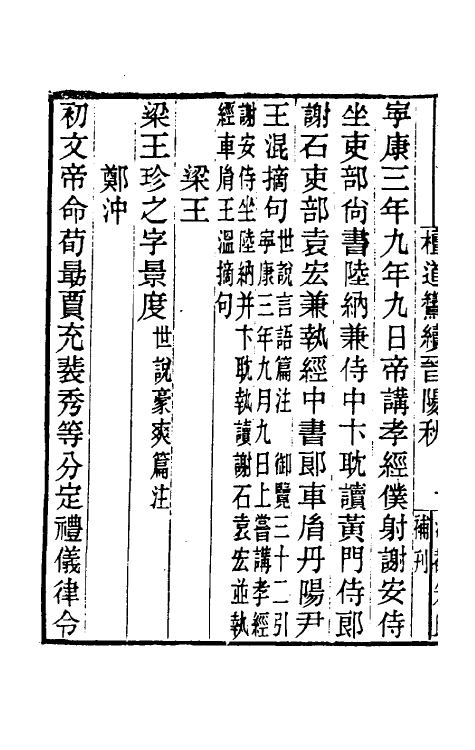 檀道鸞續晉陽秋
補刊
寧康三年九年九日帝講孝經僕射謝安侍
坐吏部尚書陸納兼侍中卞耽讀黃門侍郎
謝石吏部袁宏兼執經中書郎車胤丹陽尹
王混摘句世說言語篇注 御覽三十二引
寧康三年九月九日上嘗講孝經
謝安侍坐陸納并卞耽執讀謝石袁宏並執
經車胤王溫摘句
梁王
梁王珍之字景度世說豪爽篇注
鄭沖
初文帝命荀勗賈充裴秀等分定禮儀律令